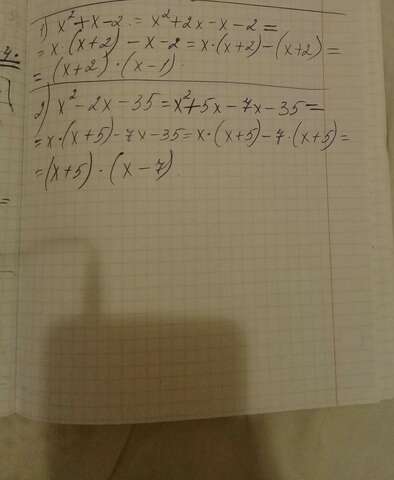 1) x²+x-2 = x²+2x-x-2 =
= x·(x+2) - x-2 = x·(x+2)-(x+2) =
= (x+2)·(x-1)
2) x²-2x-35=x²+5x-7x-35=
=x·(x+5)-7x-35=x·(x+5)-7·(x+5)=
=(x+5)·(x-7)